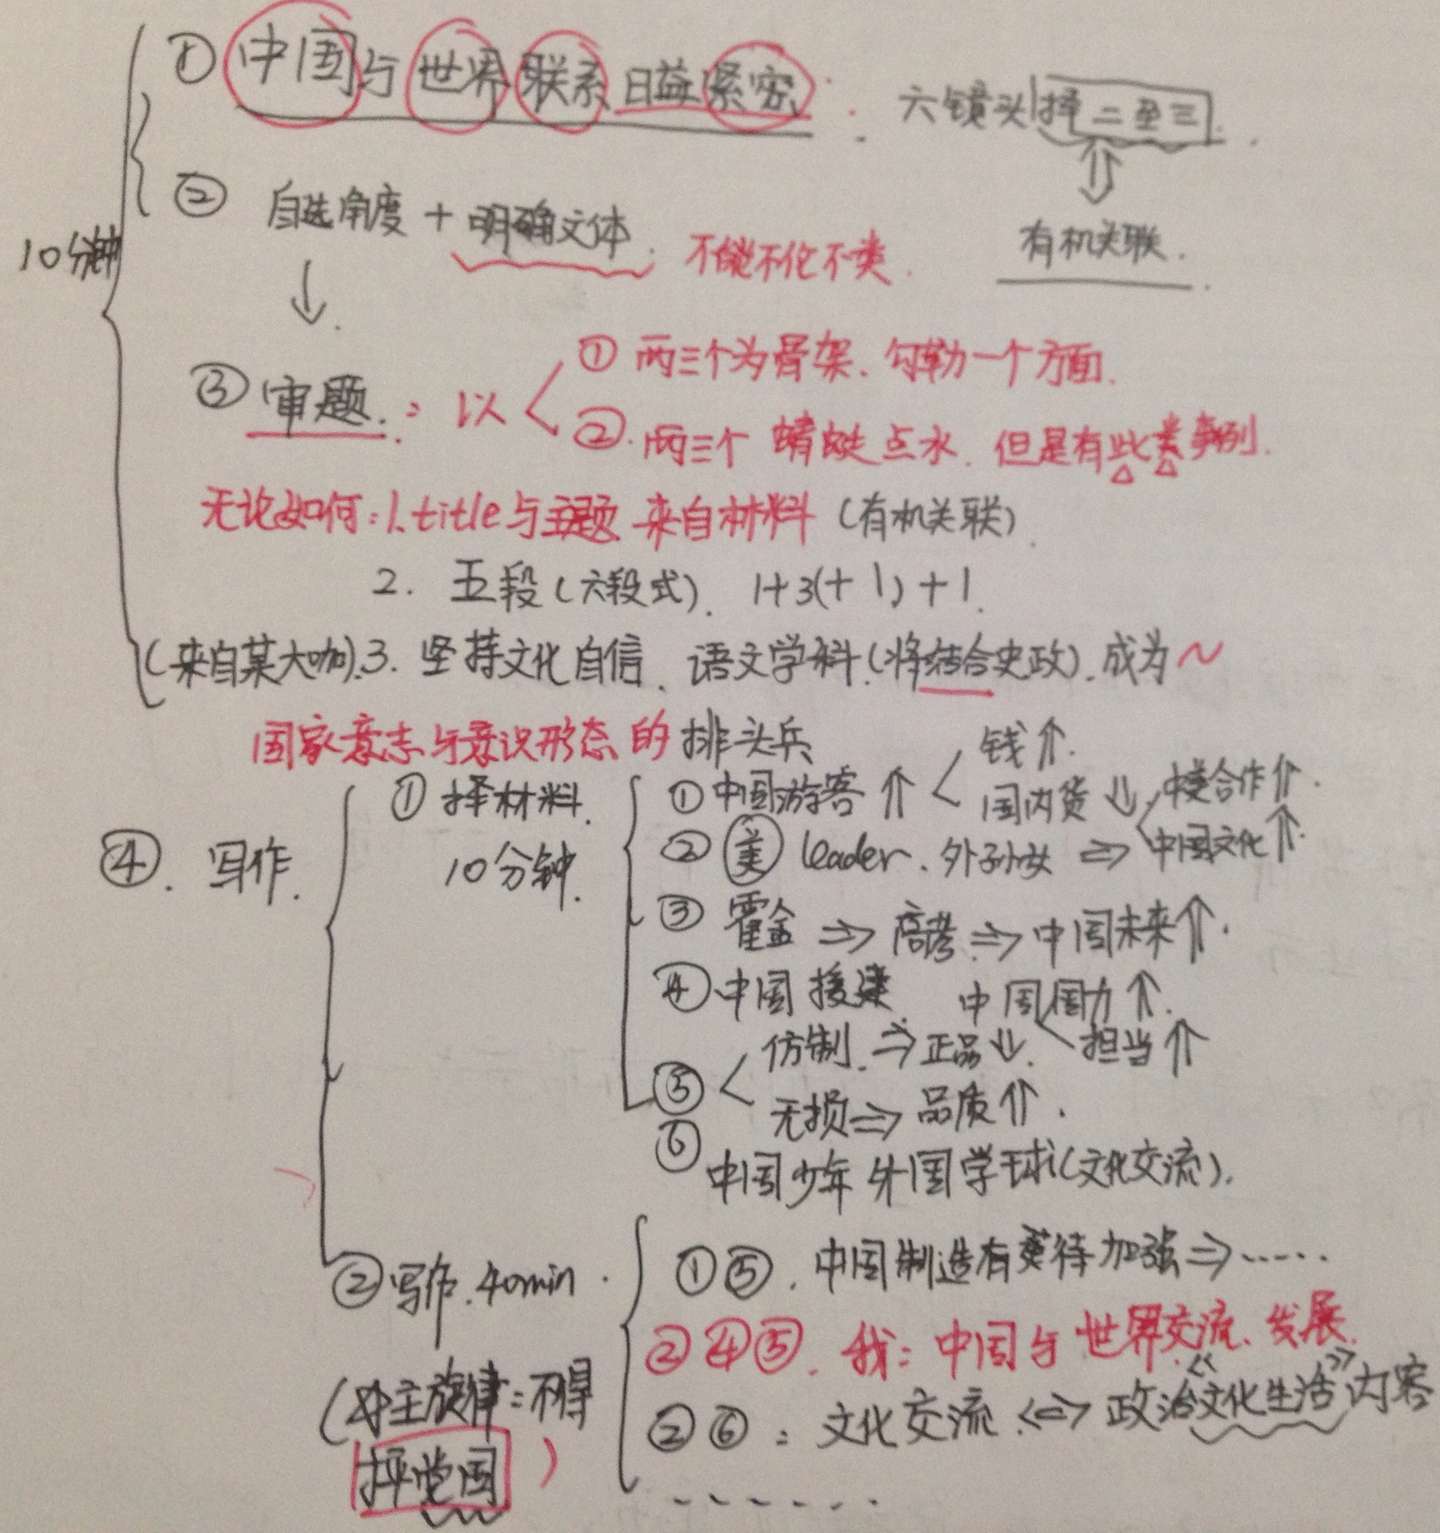 ① 中国与世界联系日益紧密. 六镜头择二至三.
有机关联.
② 自选角度 + 明确文体. 不能不伦不类.
10分钟
③ 审题: 以 ① 两三个为骨架、勾勒一个方面.
②. 两三个 蜻蜓点水. 但是有此类事例.
无论如何: 1. title与主题 来自材料 (有机关联)
2. 五段(六段式). 1+3(+1)+1.
(来自某大咖).3. 坚持文化自信、语文学科(将结合史政). 成为~
国家意志与意识形态的排头兵
④. 写作.
① 择材料.
10分钟.
① 中国游客 ⇑ < 钱⇑.
国内货 ⇓
② 美 leader. 外孙女 ⇒ 中美合作⇑.
中国文化⇑.
③ 霍金 ⇒ 高考 ⇒ 中国未来⇑.
④ 中国援建 中国国力⇑.
担当⇑
⑤ < 仿制. ⇒ 正品⇓.
无损 ⇒ 品质⇑.
⑥ 中国少年 外国学球(文化交流).
② 写作. 40min.
①⑤. 中国制造有待加强⇒······
②④⑤. 我: 中国与世界交流、发展.
②⑥: 文化交流 <=> 政治《文化生活》内容
(主旋律: 不得
抨党国)
·······